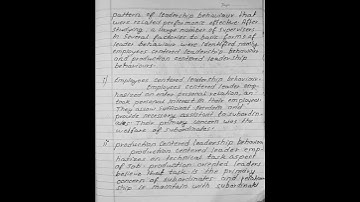 pattern of leadership behaviour that
were related performance effective. After
studying a large number of supervisor
in several factories to basic forms of
leader behaviour were identified namly
employees centered leadership behaviour
and production centered leadership
behaviour.
i) Employees centered leadership behaviour-
Employees centered leader emp-
hasised on enter personal relation, an
took personal interest in their employee
They assure sufficient freedom and
provide necessary assistant to subordin-
ates. Their primary concern was the
welfare of subordinates.
ii production centered leadership behavior
production centered leader emp-
hatizes on technical task aspect
of Job. production centred leaders
believe that task is the primary
concern of subordinates and relation
ship is maintain with subordinate